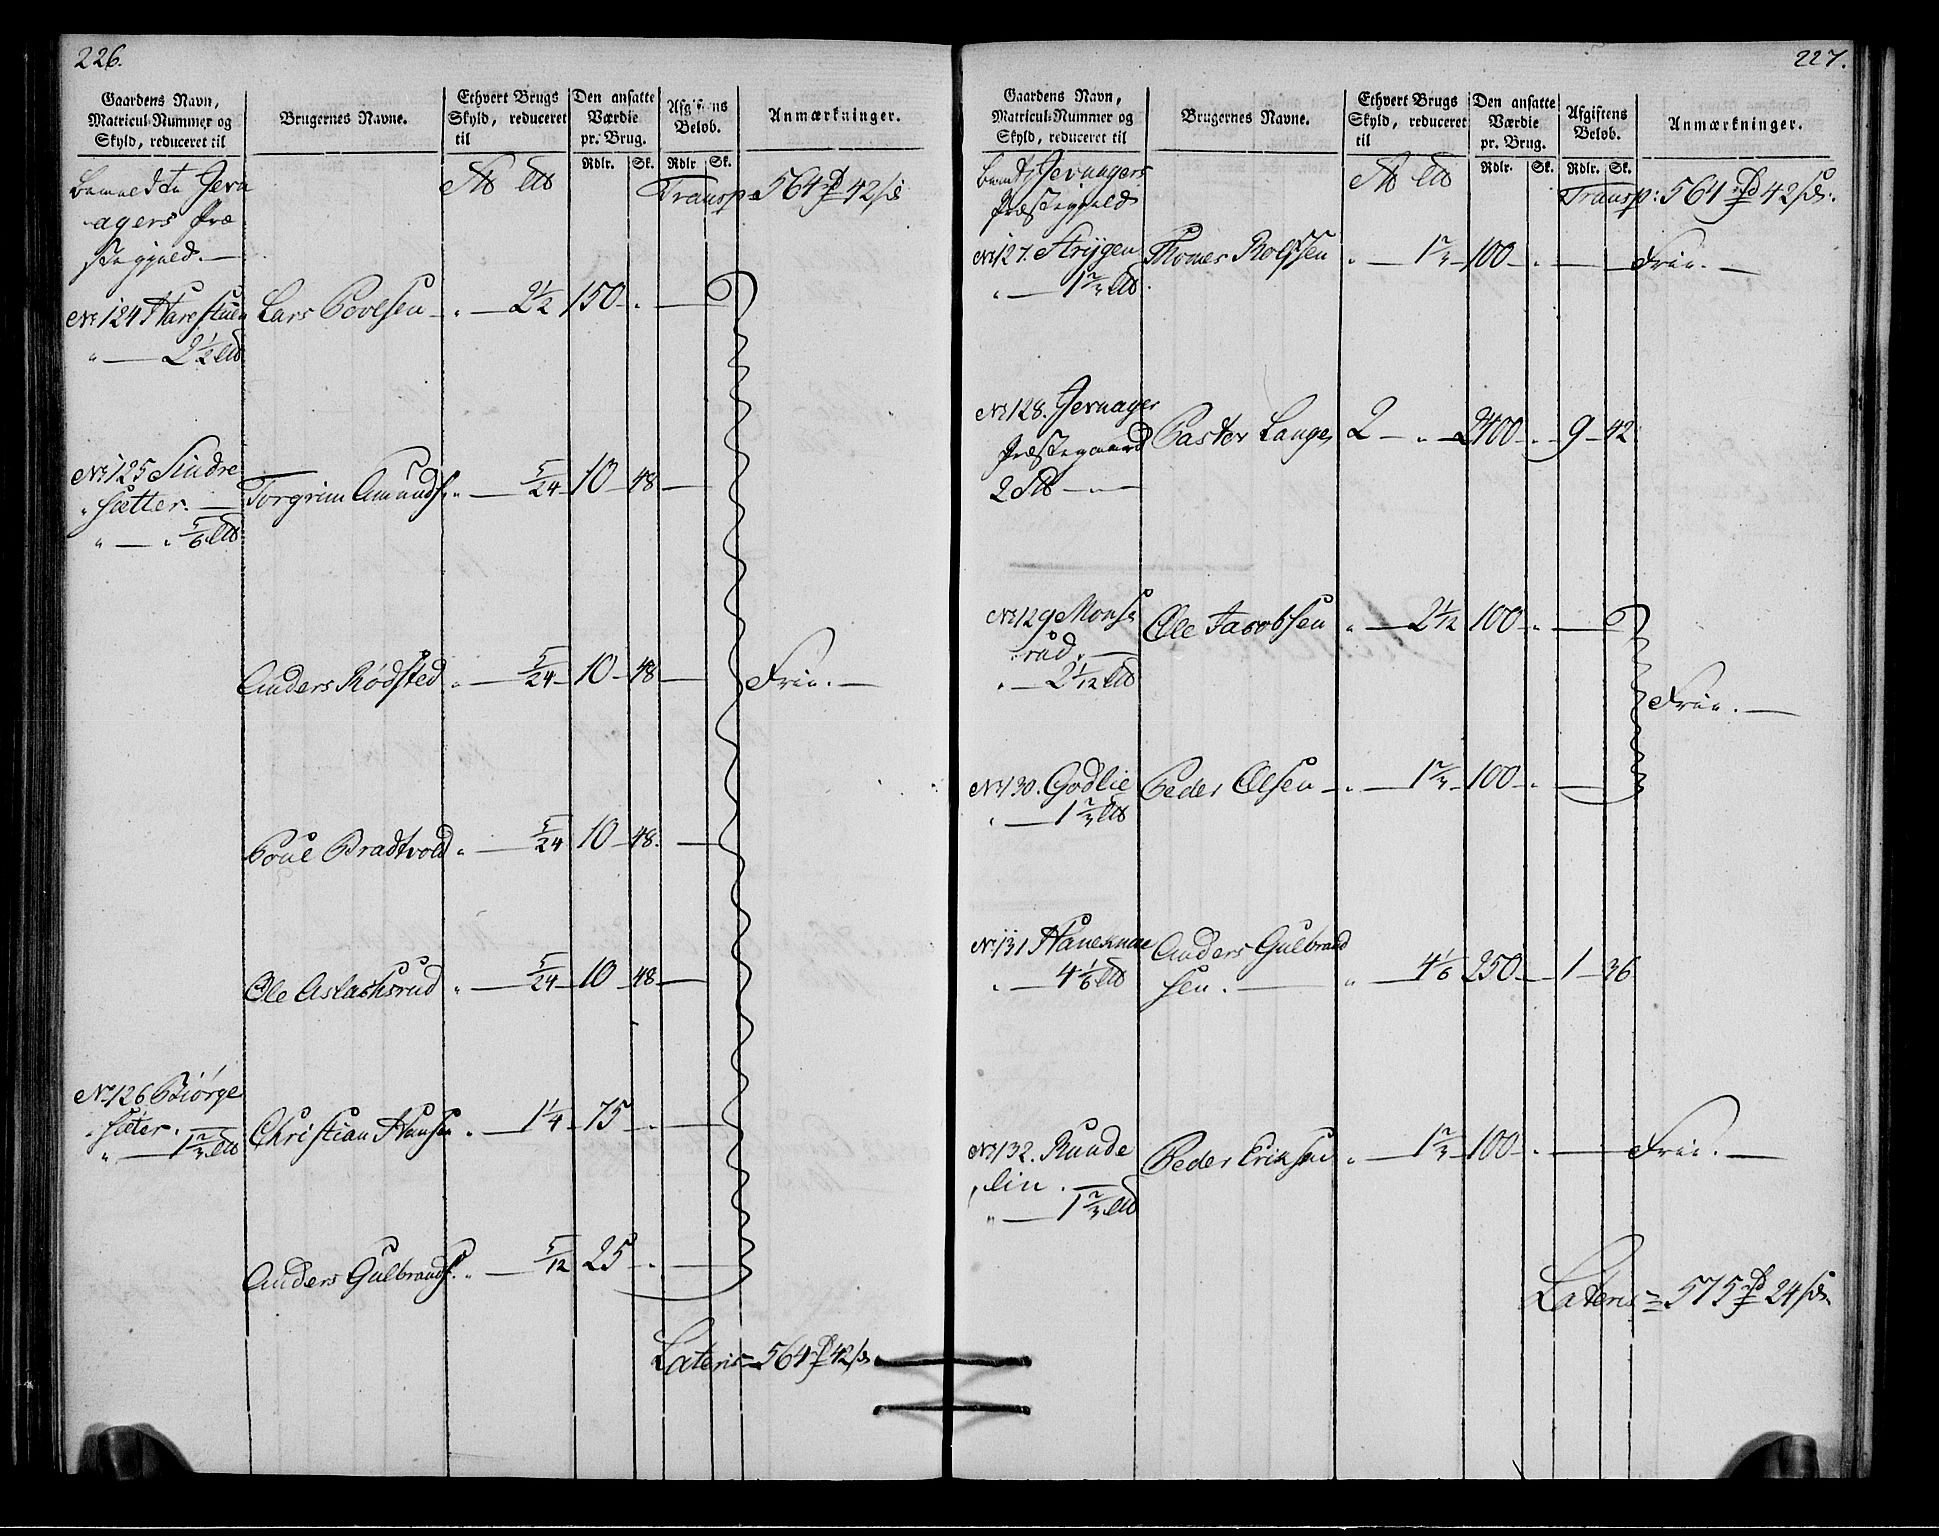 226.
Gaardens Navn,
Matricul-Nummer og
Skyld, reduceret til
Brugernes Navne.
Ethvert Brugs
Skyld, reduceret
til
Den ansatte
Værdie
pr. Brug.
Rdlr. Sk.
Afgiftens
Beløb.
Rdlr Sk.
Anmærkninger.
Bemeldte Jevn
agers Præ
stegjeld.
Transp 564 42
No 124 Harestuen Lars Povlsen " 2½ 150
" 2½
No 125 Sindre
sætter. Torgrim Amunds. " 5/24 10 48
" 5/6
Anders Rødsted " 5/24 10 48 Frie.
Poul Bradtvold " 5/24 10 48
Ole Aslachsrud " 5/24 10 48
No 126 Biørge
sæter. Christian Hansen " 1¼ 75
" 1⅔
Anders Gulbrands. " 5/12 25
Lateris 564 42
227.
Gaardens Navn,
Matricul-Nummer og
Skyld, reduceret til
Brugernes Navne.
Ethvert Brugs
Skyld, reduceret
til
Den ansatte
Værdie
pr. Brug.
Rdlr. Sk.
Afgiftens
Beløb.
Rdlr. Sk.
Anmærkninger.
Bemte Jevnagers
Præstegjeld
Transp: 564 42
No 127. Strÿgen Thomes Rolfsen " 1⅔ 100 Frie.
" 1⅔
No 128. Jevnager
Præstegaard Pastor Lange 2 " 2400 9 42
2
No 129 Monse
rud. Ole Jacobsen " 2 1/12 100
" 2 1/12
Frie.
No 130. Godlie Peder Olsen " 1⅔ 100
" 1⅔
No 131 Haneknæ Anders Gulbrand
" 4 1/6 sen. " 4 1/6 250 1 36
No 132. Runde
lin. Peder Eriksen " 1⅔ 100 Frie.
" 1⅔
Lateris 575 24